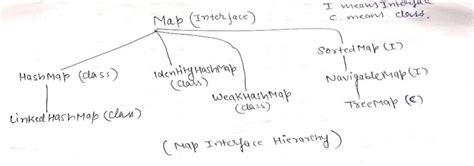 I means Interface
C. means class.
Map (Interface)
HashMap (class)
IdentityHashMap
(class)
WeakHashMap
(class)
SortedMap (I)
NavigableMap (I)
TreeMap (C)
LinkedHashMap (class)
(Map Interface Hierarchy)